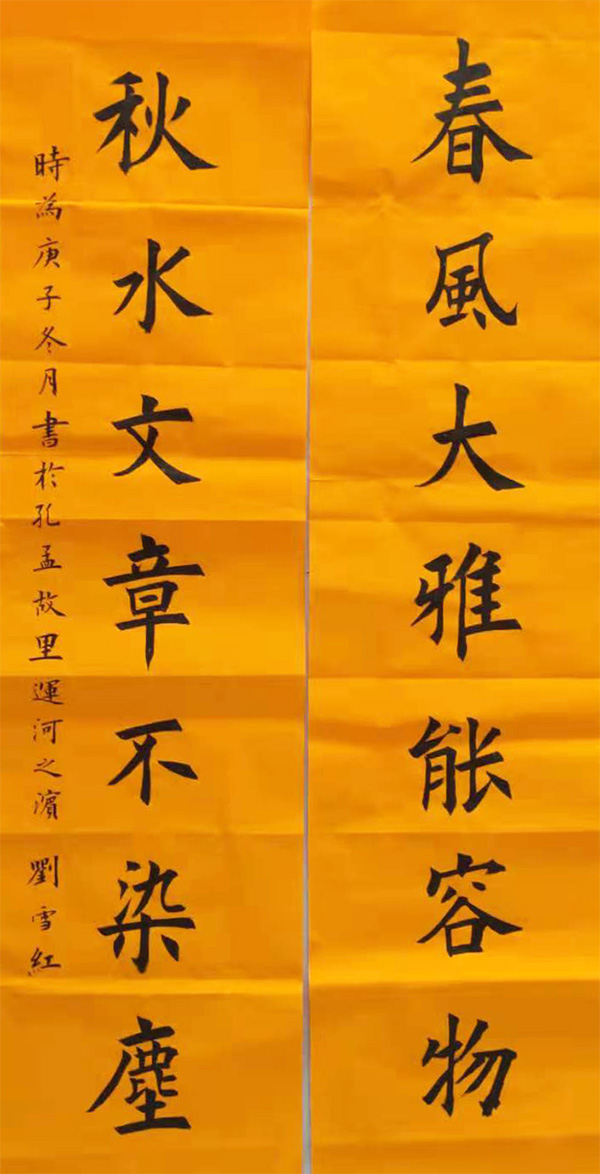 春風大雅能容物
秋水文章不染塵
時為庚子冬月書於孔孟故里運河之濱 劉雪紅